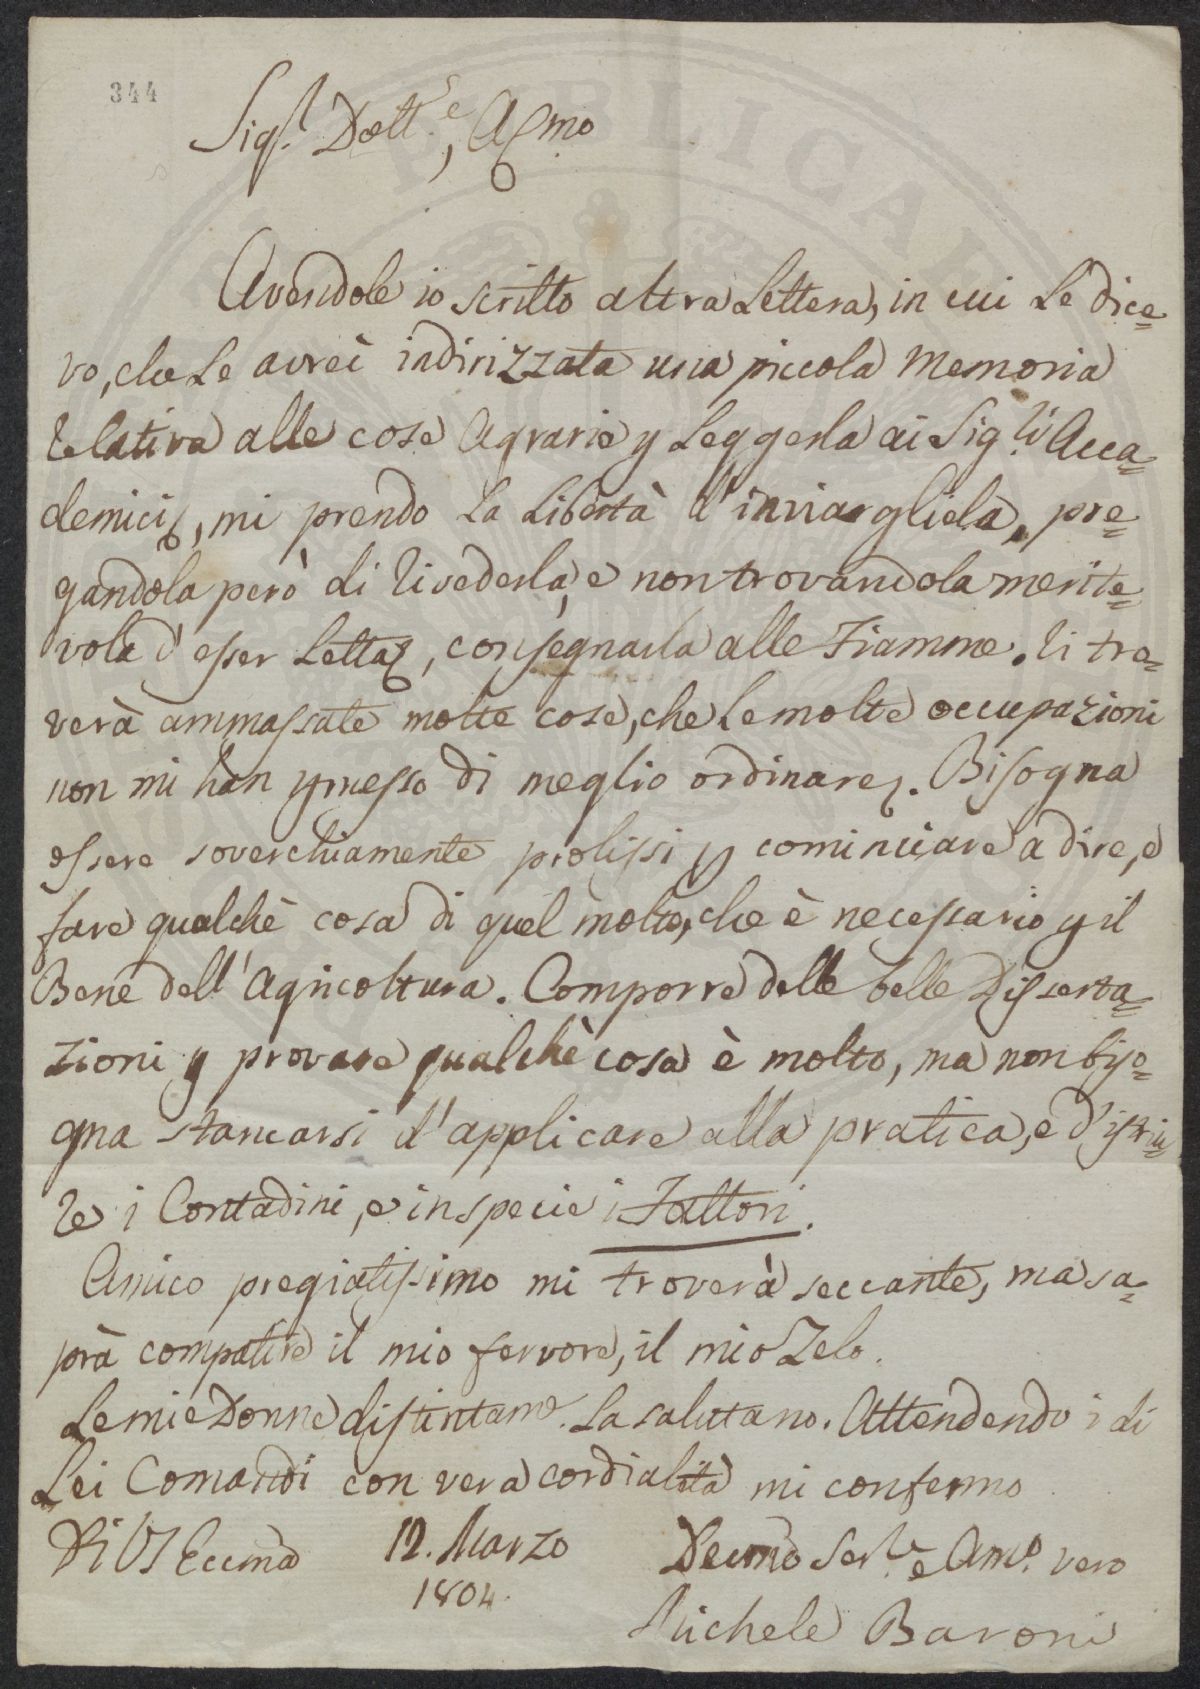 344
Sig.r Dott.e, A mo
Avendole io scritto altra Lettera, in cui Le dice=
vo, che Le avrei indirizzata una piccola Memoria
relativa alle cose Agrarie p Leggerla ai Sig.ri Acca=
demici, mi prendo La Libertà d'inviargliela, pre=
gandola però di rivederla, e non trovandola merite=
vole d'esser Letta, consegnarla alle Fiamme. Vi tro=
verà ammassate molte cose, che Le molte occupazioni
non mi han pmesso di meglio ordinare. Bisogna
essere soverchiamente prolissi p cominciare a dire, e
fare qualchè cosa di quel molto, che è necessario p il
Bene dell'Agricoltura. Comporre delle belle Disserta=
zioni p provare qualchè cosa è molto, ma non biso=
gna stancarsi d'applicare alla pratica, e d'istrui=
re i Contadini, e in specie i Fattori.
Amico pregiatissimo mi troverà seccante, ma sa=
prà compatire il mio fervore, il mio Zelo.
Le mie Donne distintame. La salutano. Attendendo i di
Lei Comandi con vera cordialità mi confermo
Di VS Eccma 12. Marzo Devmo Ser.e e Am.o vero
1804.
Michele Baroni